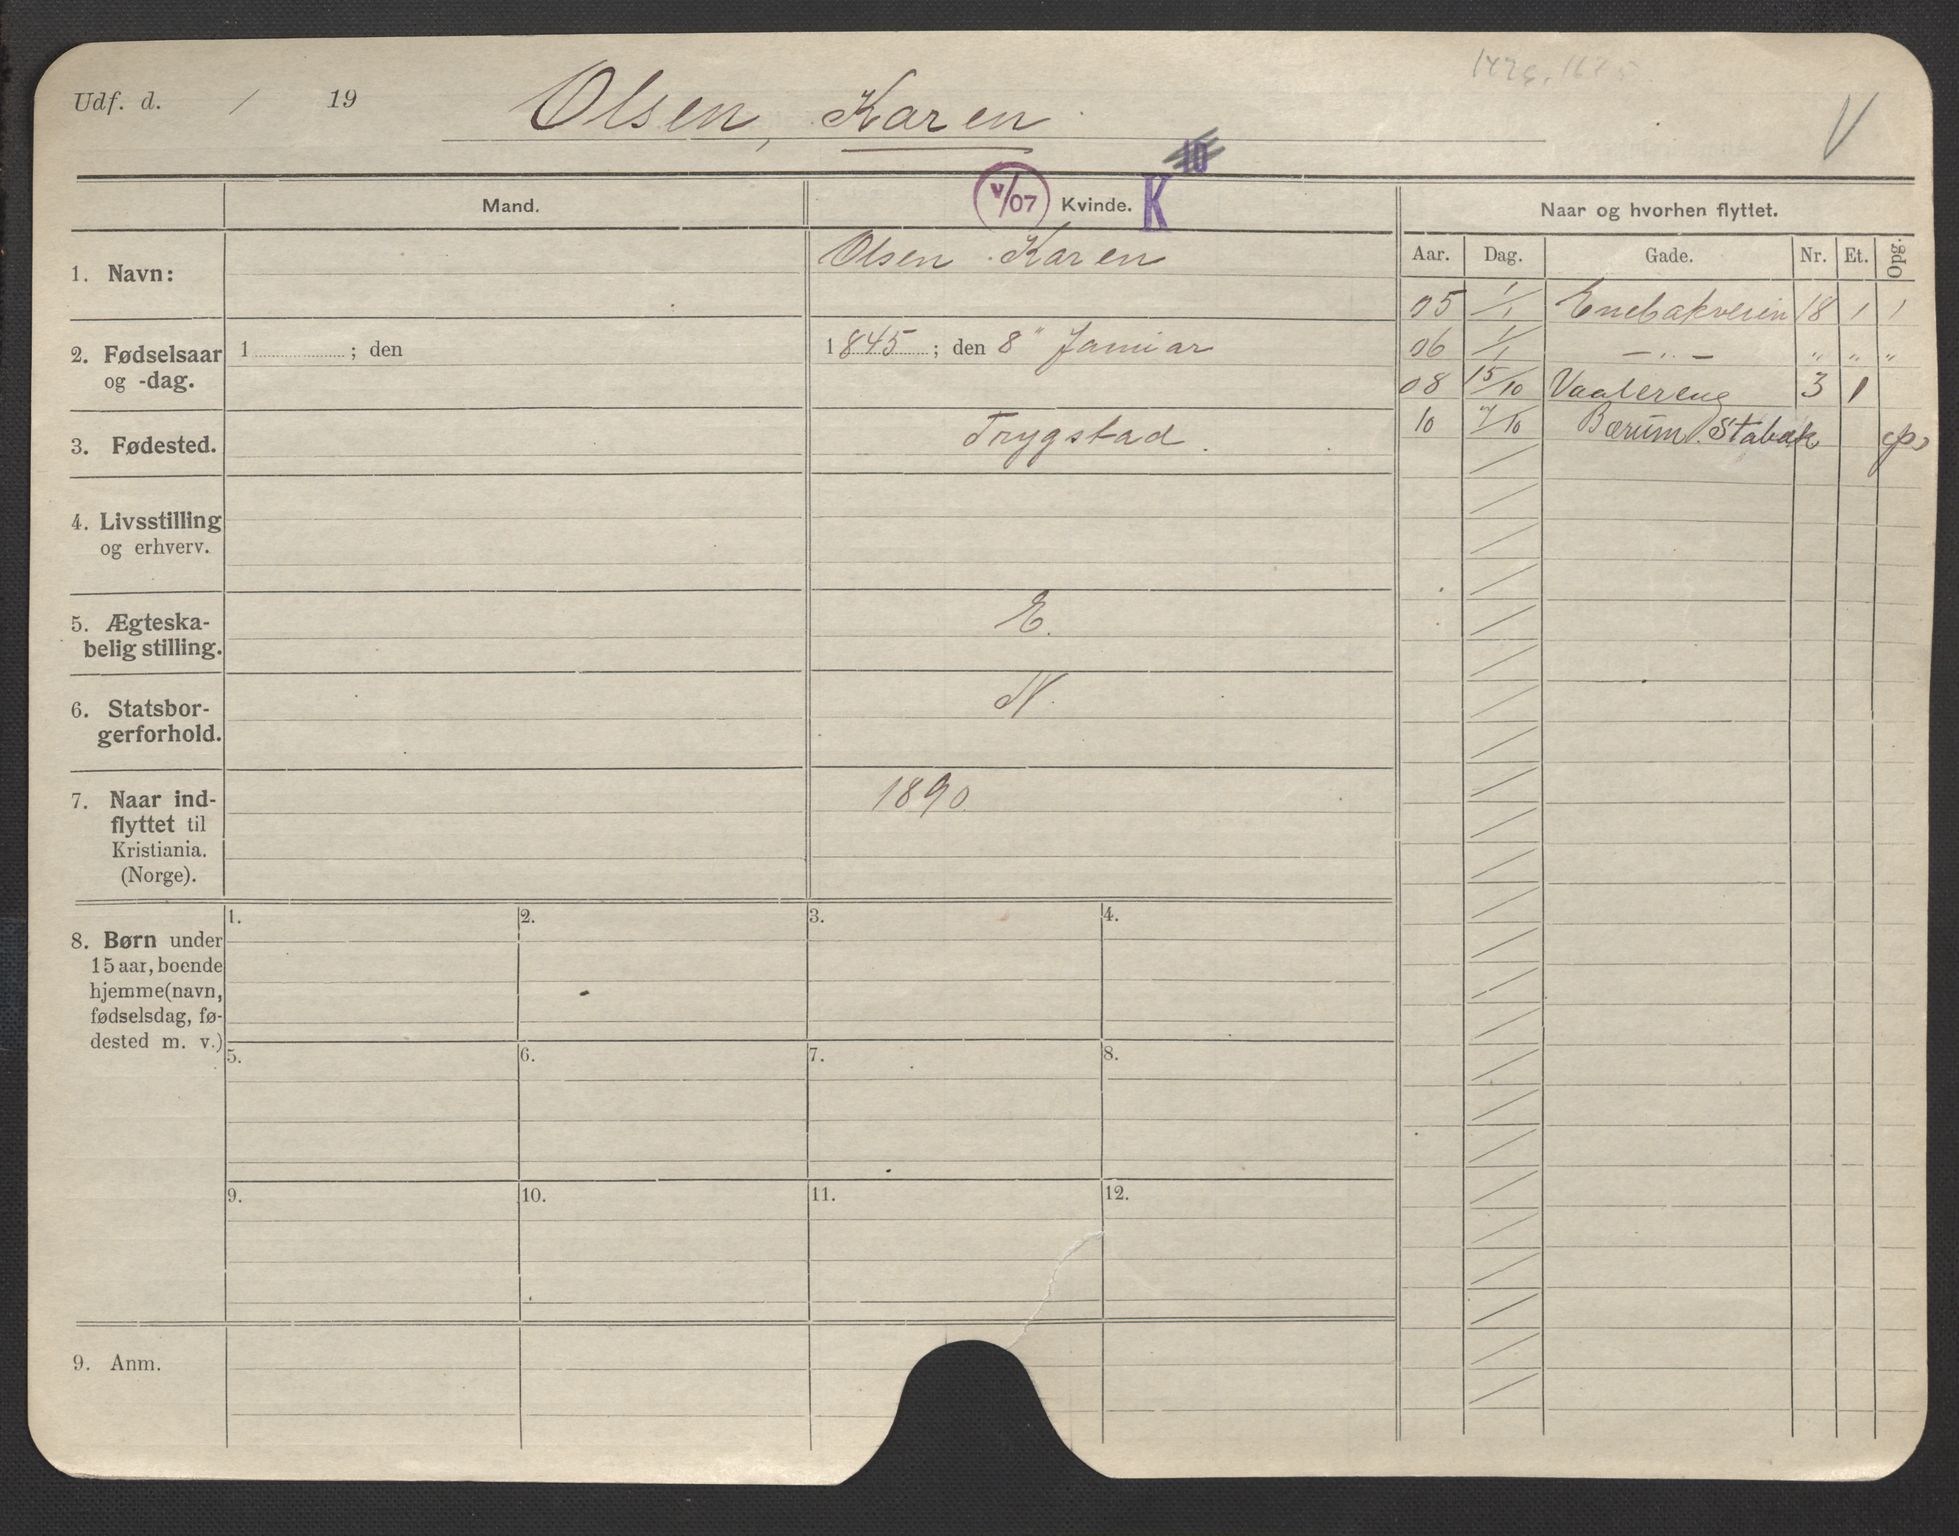 Udf. d. / 19
Olsen, Karen
V
Mand.
V/07 Kvinde. K 10
Naar og hvorhen flyttet.
Aar. Dag. Gade. Nr. Et. Opg.
1. Navn:
Olsen Karen
05 1/1 Enebakveien 18 1 1
2. Fødselsaar
og -dag.
1 ; den
1845 ; den 8" Januar
06 1/1 — " — " " "
08 15/10 Vaalereng 3 1
10 /10 Bærum Stabæk
3. Fødested.
Trygstad.
4. Livsstilling
og erhverv.
5. Ægteska-
belig stilling.
E.
6. Statsbor-
gerforhold.
N.
7. Naar ind-
flyttet til
Kristiania.
(Norge).
1890.
8. Børn under
15 aar, boende
hjemme (navn,
fødselsdag, fø-
dested m. v.)
1. 2. 3. 4.
5. 6. 7. 8.
9. 10. 11. 12.
9. Anm.